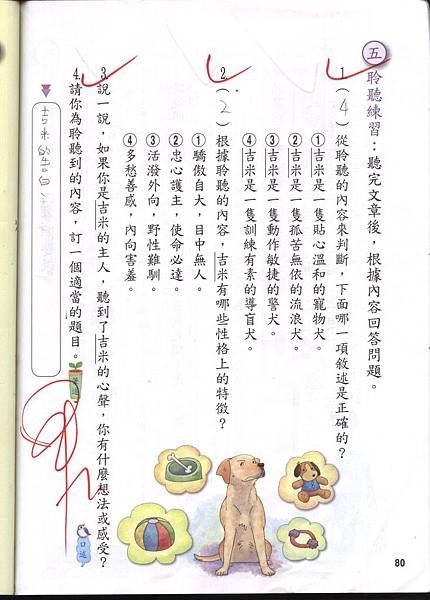 五 聆聽練習：聽完文章後，根據內容回答問題。
1.（4）從聆聽的內容來判斷，下面哪一項敘述是正確的？
①吉米是一隻貼心溫和的寵物犬。
②吉米是一隻孤苦無依的流浪犬。
③吉米是一隻動作敏捷的警犬。
④吉米是一隻訓練有素的導盲犬。
2.（2）根據聆聽的內容，吉米有哪些性格上的特徵？
①驕傲自大，目中無人。
②忠心護主，使命必達。
③活潑外向，野性難馴。
④多愁善感，內向害羞。
3.說一說，如果你是吉米的主人，聽到了吉米的心聲，你有什麼想法或感受？
口述
4.請你為聆聽到的內容，訂一個適當的題目。
吉米的告白
80